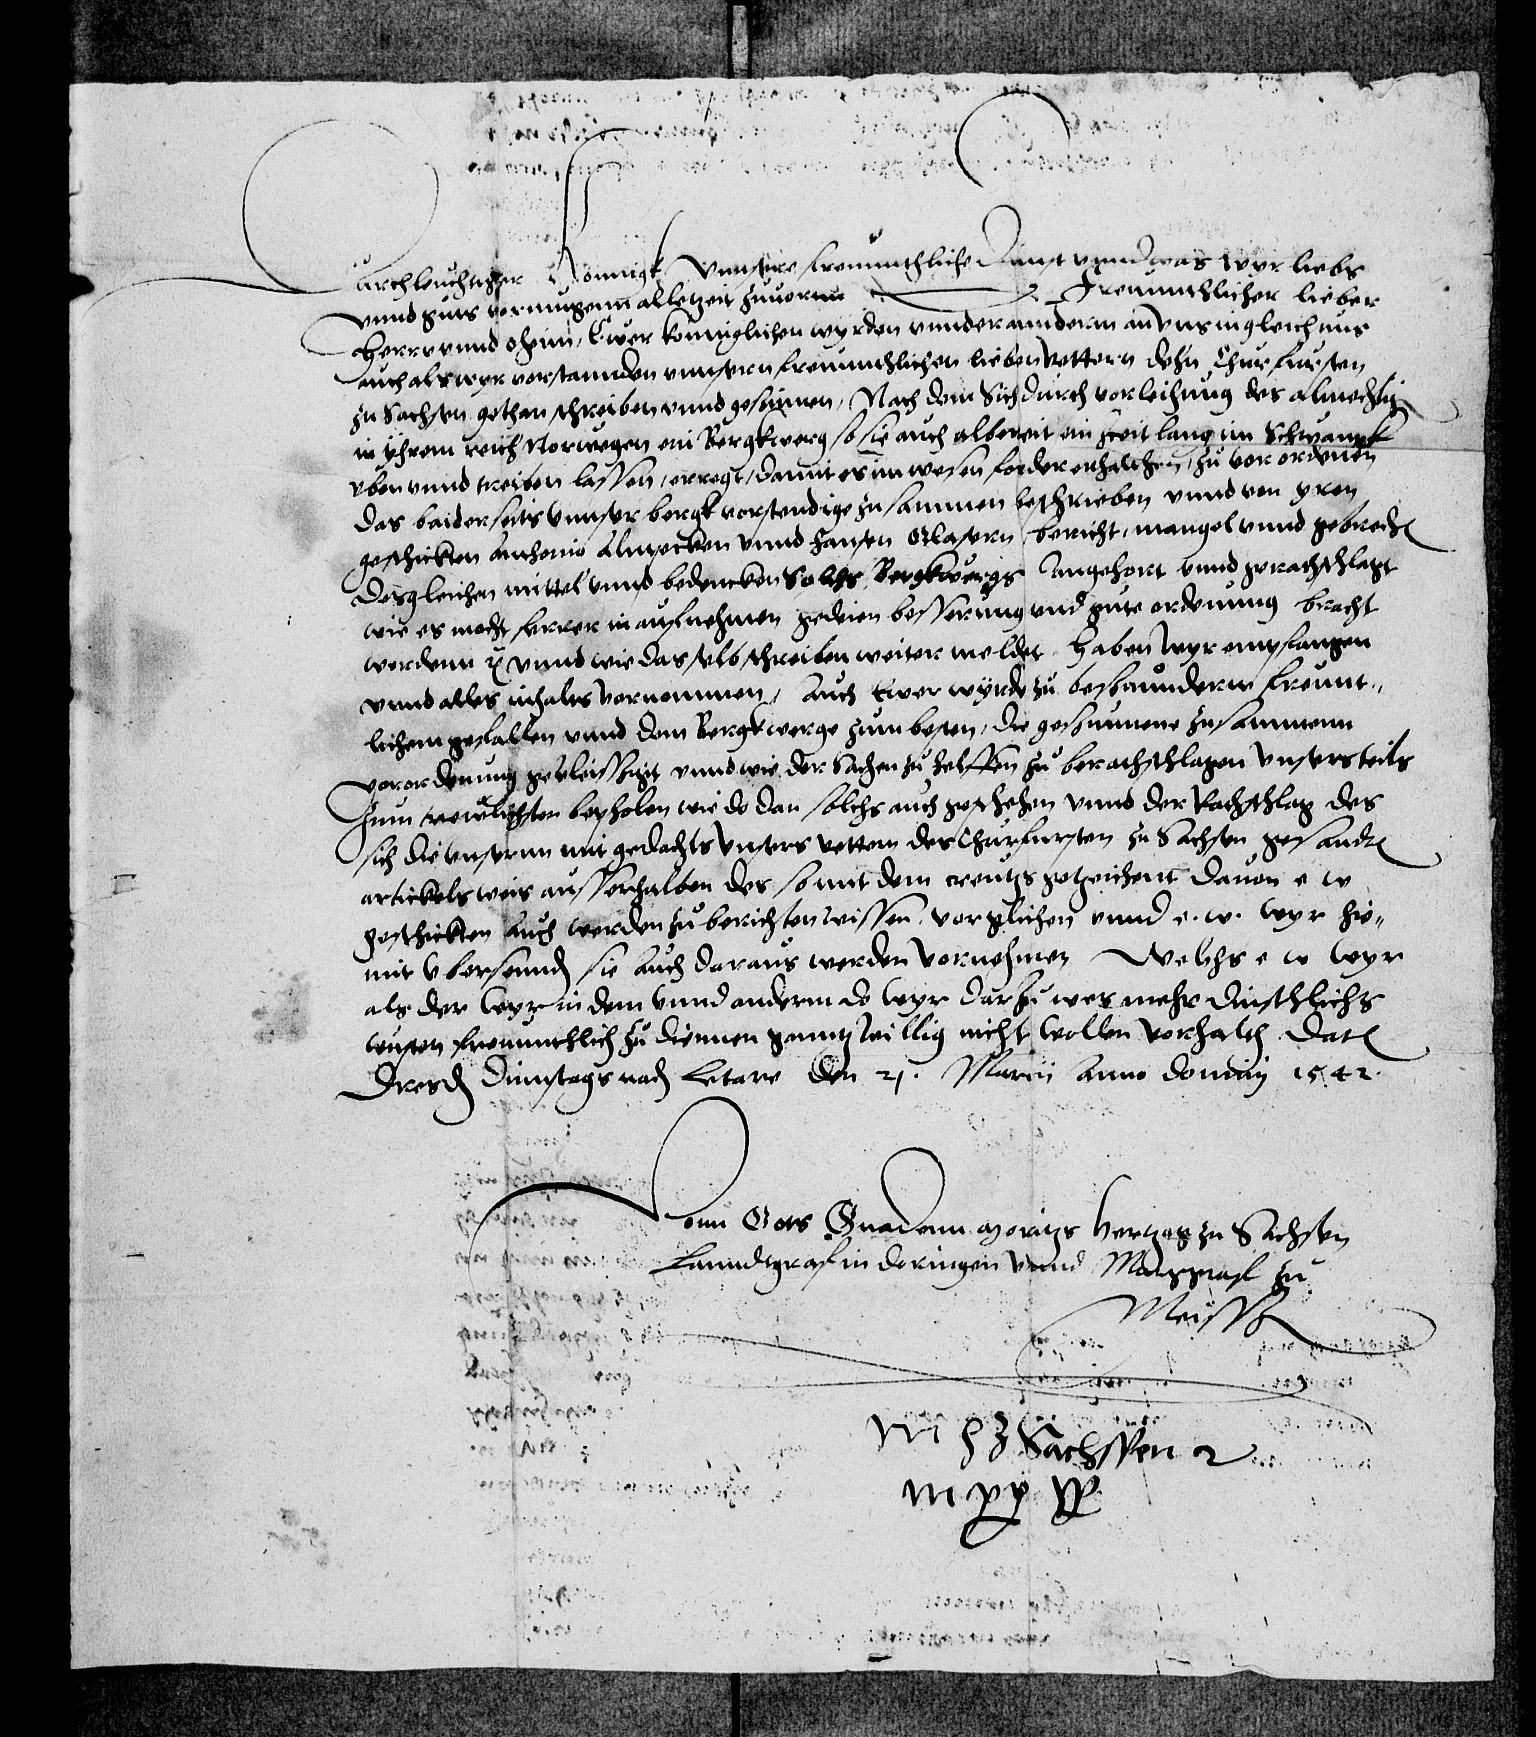 Durchleuchtigster Konnigk Vnnsere freunthliche dinst vnnd was wyr liebs
vnnd guts vormugenn alletzeit zuuorn Freunthlicher lieber
Herr vnnd oheim, Ewer koniglichen wyrden vnnder annderm an vns ingleichnus
auch als wyr vorstannden vnnsern freunthlichen lieben Vettern dehn Churfursten
zu Sachsen gethan schreiben vnnd gesinnen, Nach dem Sich durch vorleihung des almechtig
in yhrem reich Norwegen ein Bergkwerg so sie auch albereit ein zeit lang im Schwanck
vben vnnd treiben lassen, erregt, damit es im wesen forder erhalthen, zu vorordenen
das baiderseits vnnser bergkvorstendige zusammen beschrieben vnnd von yren
geschickten Anthonio Alnpecken vnnd Hansen Glasern bericht, mangel vnnd gebreche
desgleichen mittel vnnd bedencken Solchs Bergkwergs Angehort vnnd gerathschlagt
wie es mocht ferrer in aufnehmen gedeien besserung vnd gute ordenung bracht
werdenn etc vnnd wie das selb schreiben weiter meldet haben Wyr empfangen
vnnd alles inhalts vornommen, Auch Ewer wyrde zu besounderm freunt„
lichem gefallen vnnd dem Bergkwerge zum besten, die gesunnene zusammenn
vorordenung gevleissigt vnnd wie der Sachen zu helffen zu berathschlagen Vnsers teils
zum trewlichsten bepholen wie do dan solchs auch geschehen vnnd der Rathschlag des
sich die vnsernn mit gedachts Vnsers vettern des Churfursten zu Sachsen gesandte
artickels weis ausserhalben des so mit dem creutz getzeichent dauon e w
geschickten Auch werden zu berichten wissen vorglichen vnnd e. w. wyr hie„
mit Vbersennd sie Auch daraus werden Vornehmen Welchs e w wyr
als der Wyr in dem Vnnd anderm do Wyr darzu wes mehr dinsthlichs
wusten freunthlich zu diennen gantz Willig nicht Wollen Vorhalth Date
Dresd Dinstags nach Letare den 21. Marcij Anno domini 1542.
Vonn Gots Gnadenn moritz Hertzog zu Sachsen
Lanndtgraf in doringen Vnnd Marggraf zu
Meissen
M H Z Sachssen
m p p